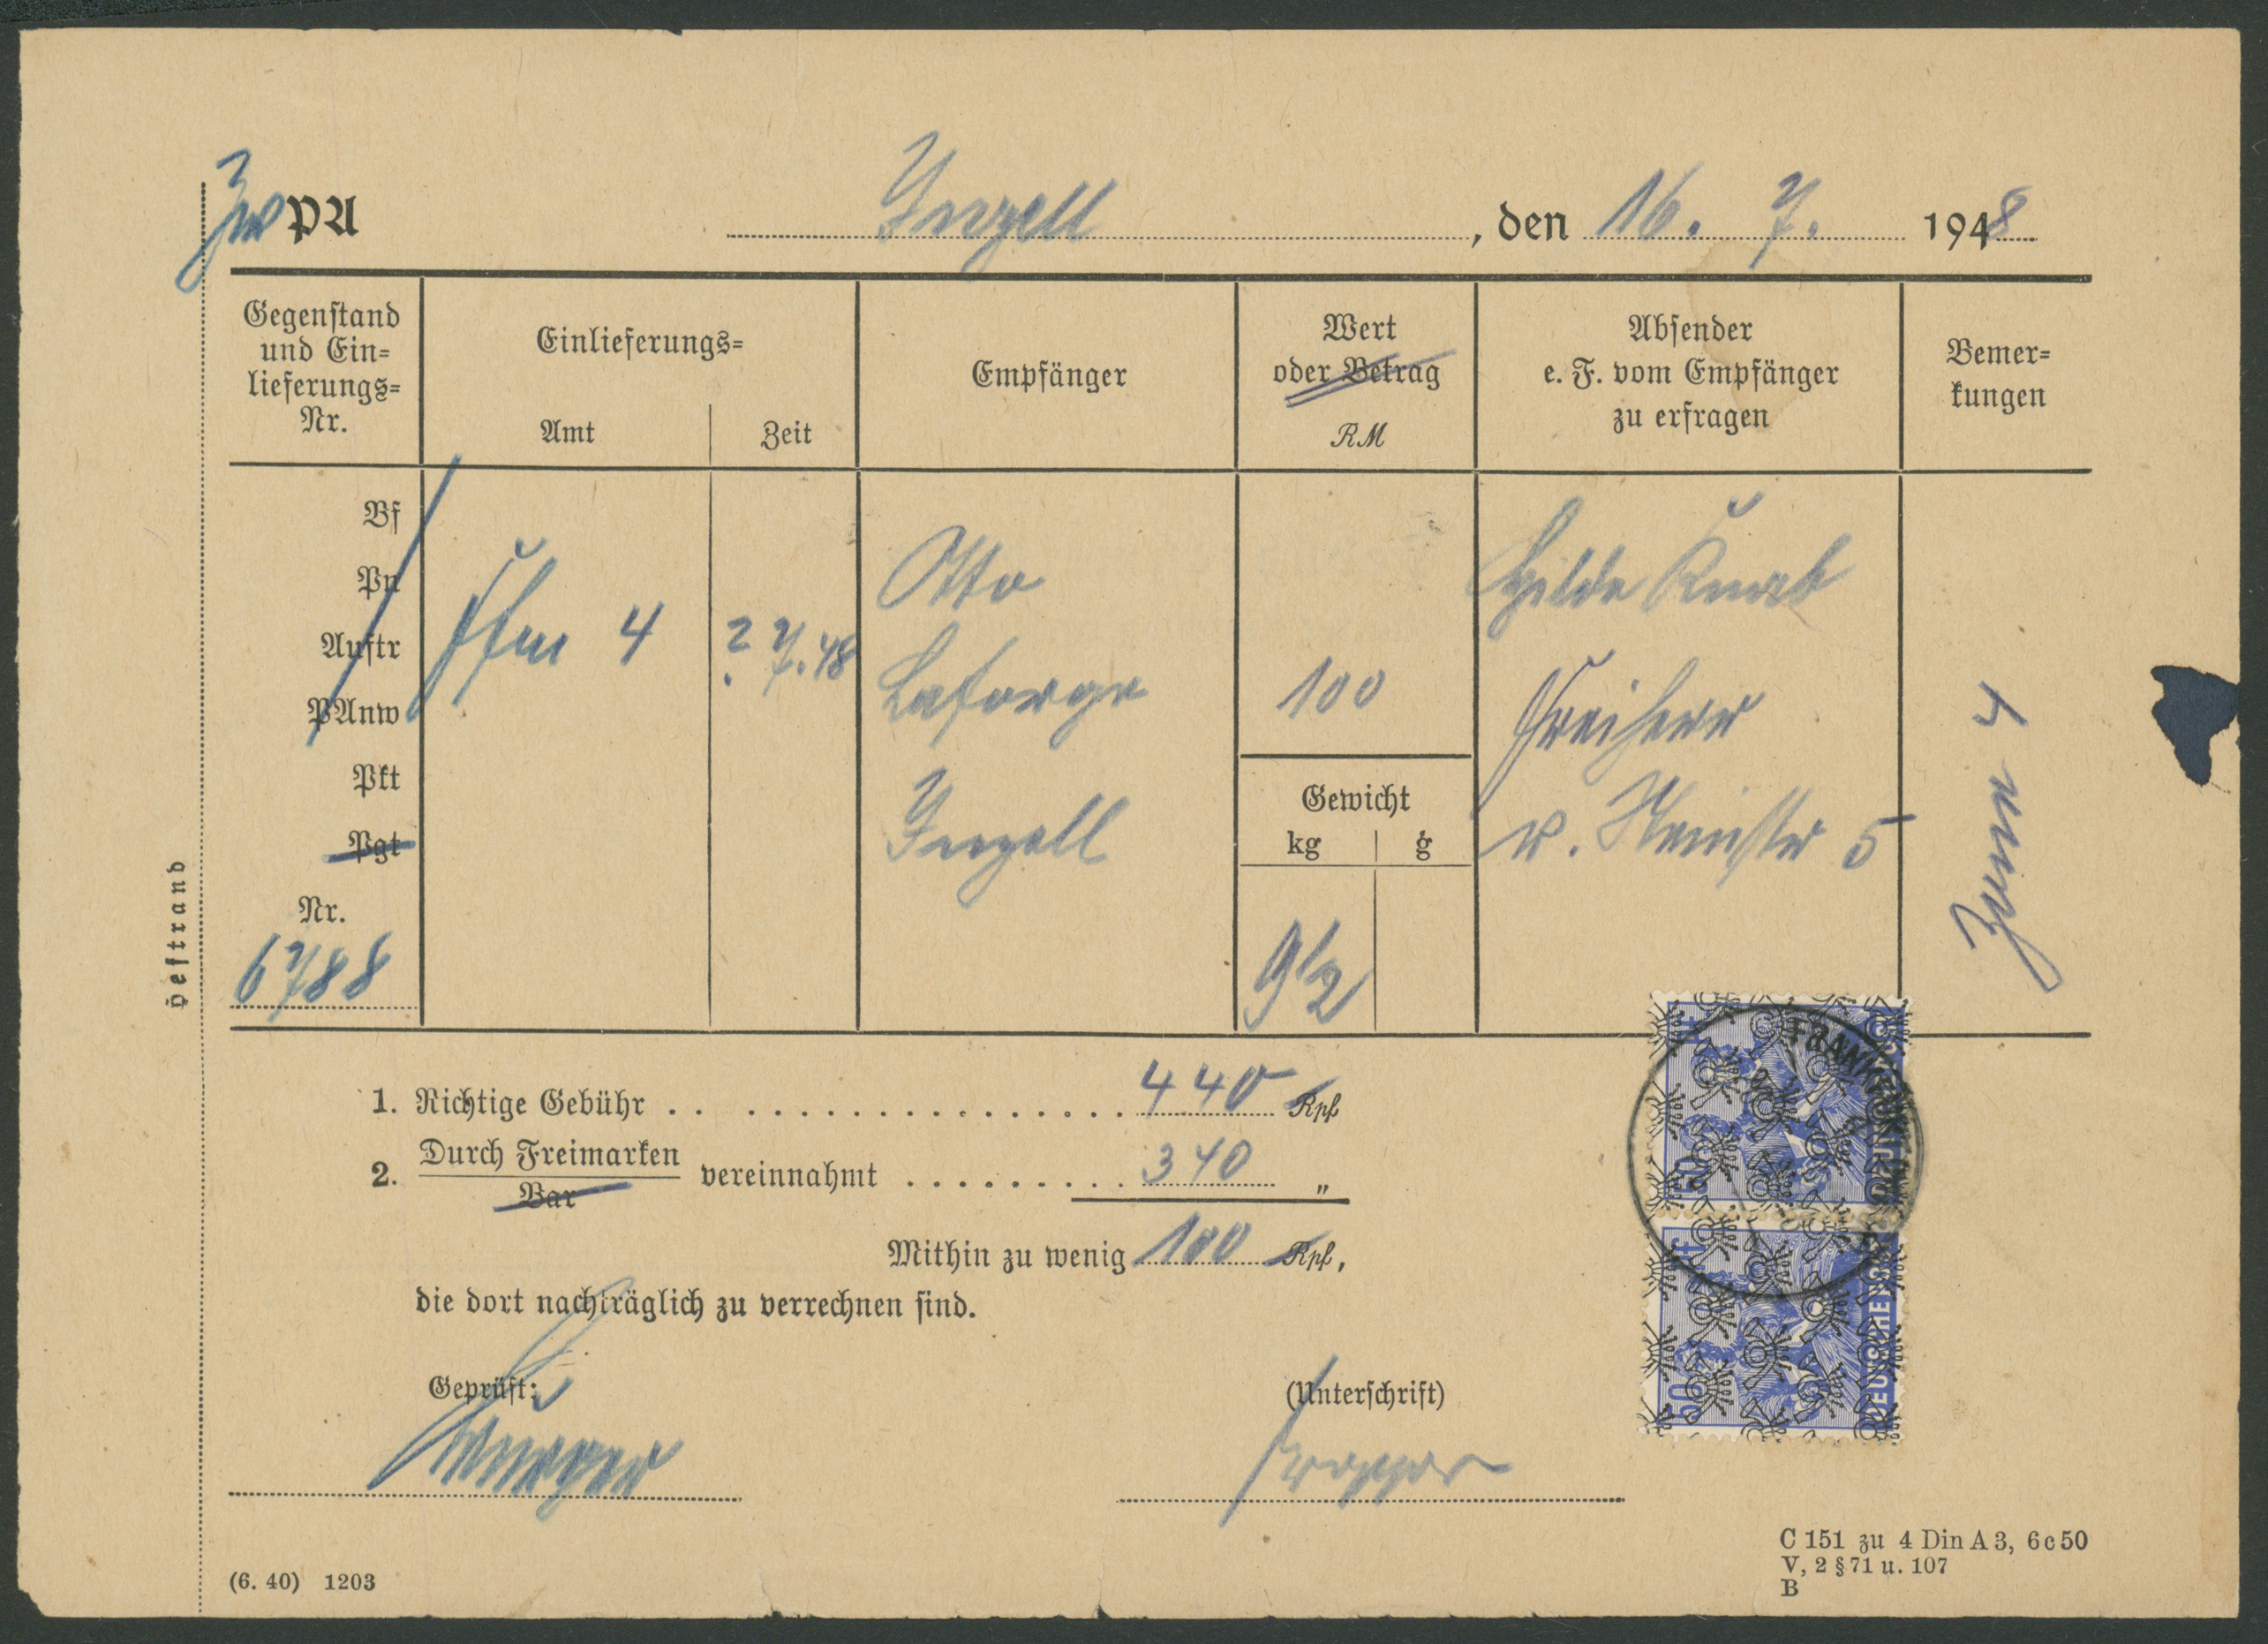 Zw PA Inzell, den 16. 7. 1948
Gegenstand und Einlieferungs-Nr.
Einlieferungs=
Amt
Zeit
Empfänger
Wert
oder Betrag
RM
Absender
e. F. vom Empfänger
zu erfragen
Bemer=
kungen
Bf
Pn
Auftr
PAnw
Pkt
Pgt
Nr.
6788
Ffm 4
2. 7. 48
Otto
Laforge
Inzell
100
Gewicht
kg
g
9 1/2
Hilde Knab
Freiherr
v. 5
4
Heftrand
1. Richtige Gebühr 440 Rpf
2. Durch Freimarken
Bar
vereinnahmt 340 "
Mithin zu wenig 100 Rpf,
die dort nachträglich zu verrechnen sind.
Geprüft:
(Unterschrift)
FRANKFURT
50
50
DEUTSCHE
(6. 40) 1203
C 151 zu 4 Din A 3, 6c50
V, 2 § 71 u. 107
B